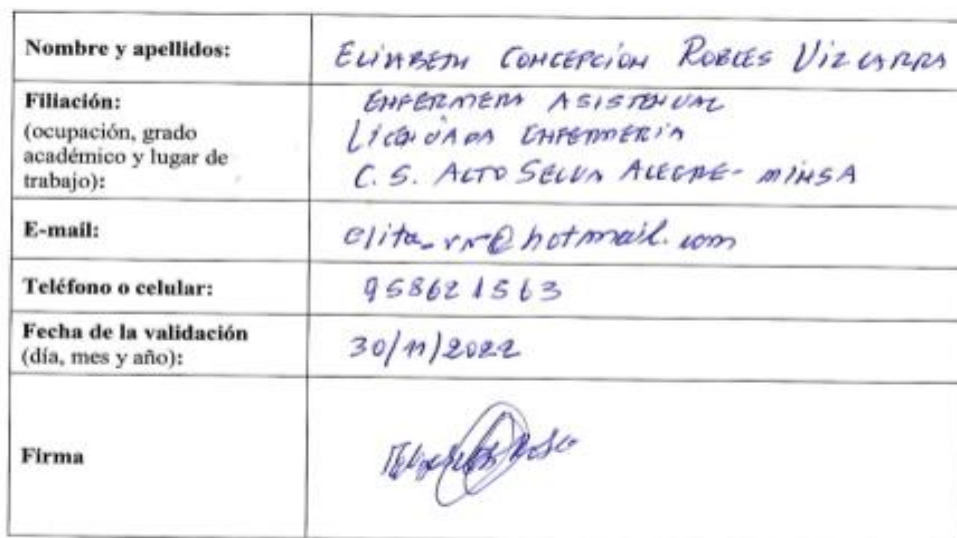 Nombre y apellidos:
ELIZABETH CONCEPCIÓN ROBLES VIZCARRA
Filiación:
(ocupación, grado
académico y lugar de
trabajo):
ENFERMERA ASISTENCIAL
LICENCIADA ENFERMERÍA
C. S. ALTO SELVA ALEGRE - MINSA
E-mail:
elita_rr@hotmail.com
Teléfono o celular:
958621563
Fecha de la validación
(día, mes y año):
30/11/2022
Firma